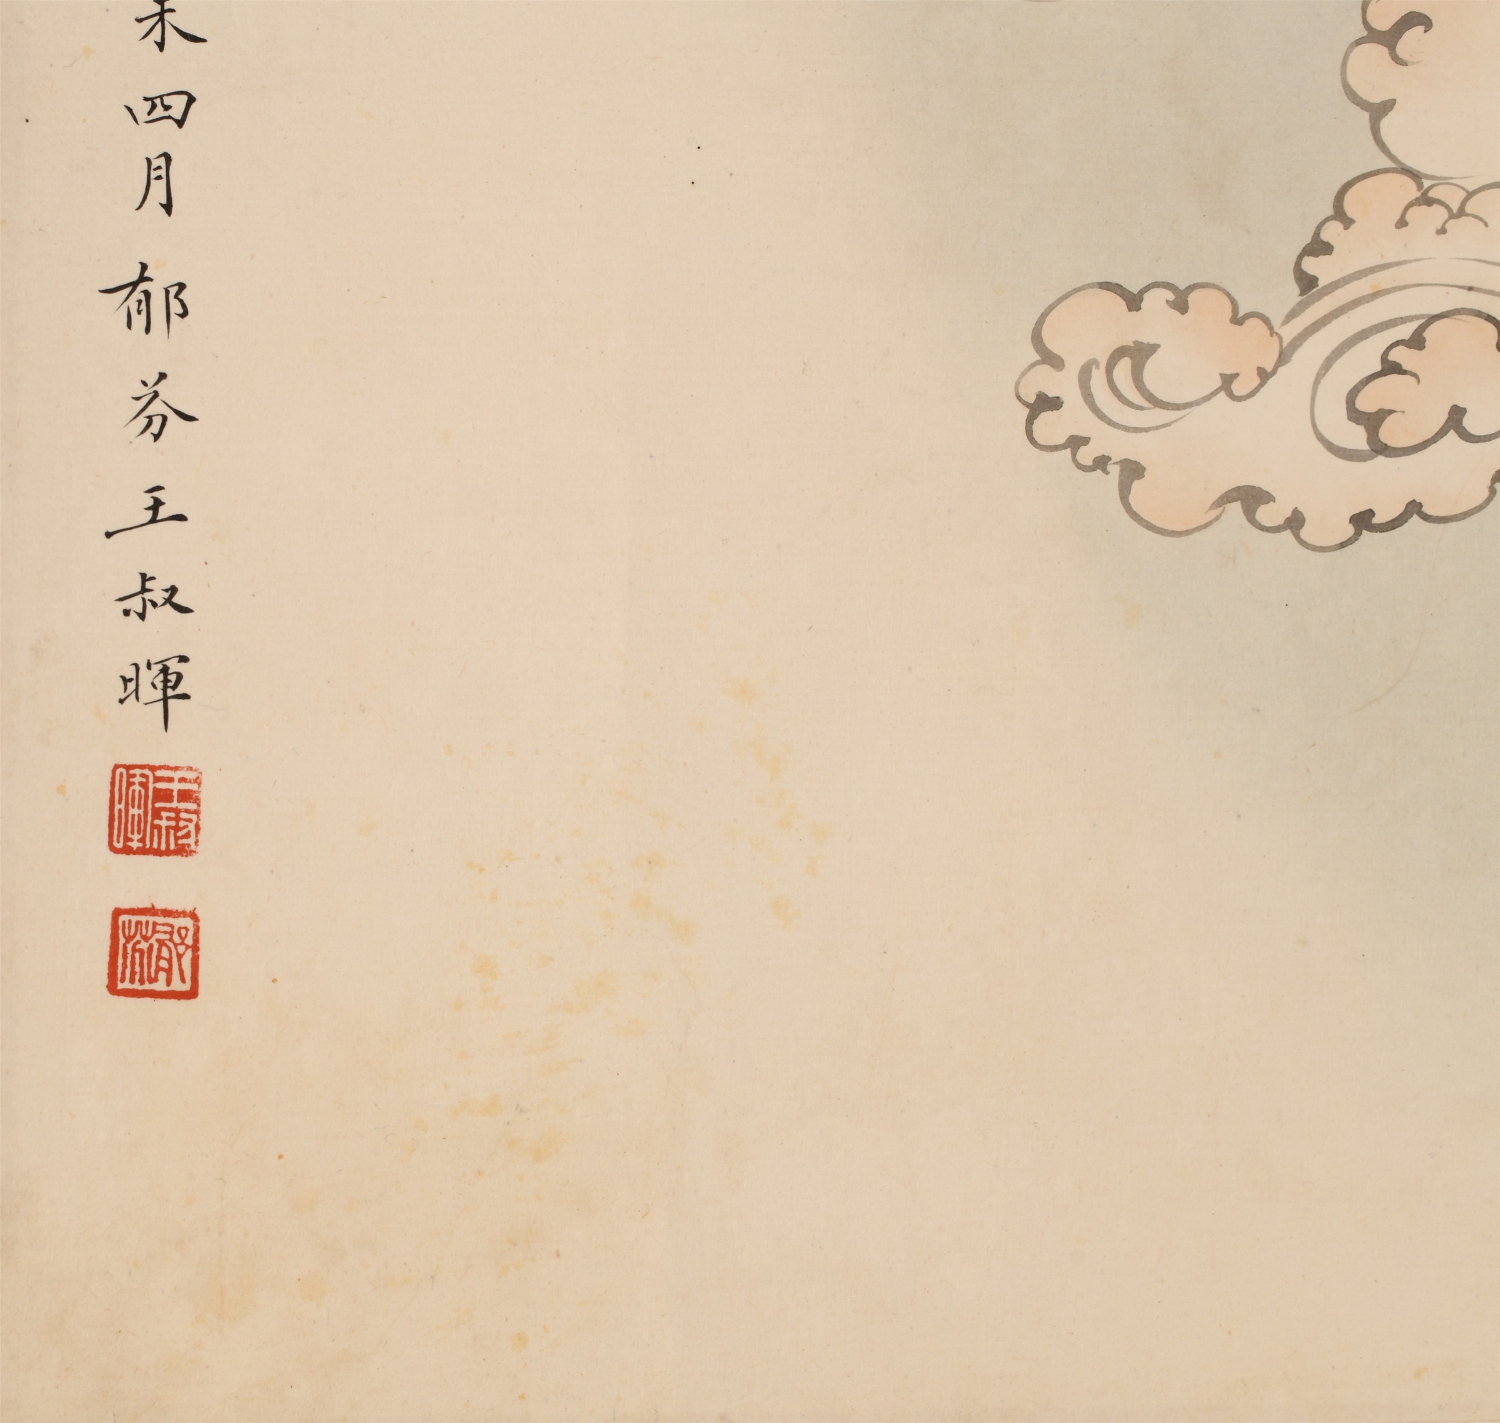 未四月郁芬王叔暉
王叔暉
郁芬